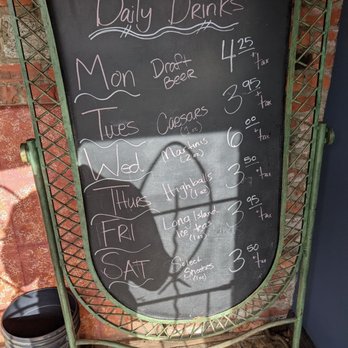 Daily Drinks
Mon Draft Beer 4.25 + tax
Tues Caesars (1 oz) 3.95 + tax
Wed Martinis (2 oz) 6.00 + tax
Thurs Highballs (1 oz) 3.50 + tax
Fri Long Island Ice Teas (1 oz) 3.95 + tax
Sat Select Shooters (1 oz) 3.50 + tax